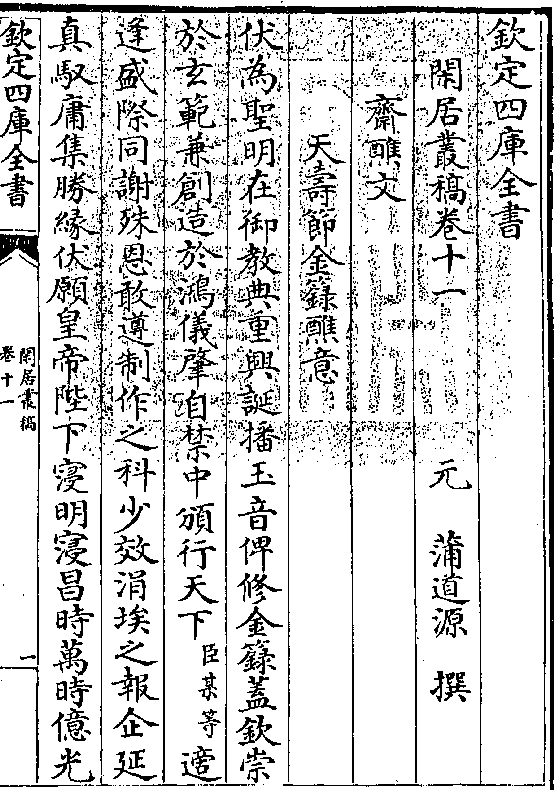 欽定四庫全書
閑居叢稿卷十一　元　蒲道源　撰
齋醮文
天壽節金籙醮意
伏為聖明在御教典重興誕播玉音俾修金籙蓋欽崇
於玄範兼創造於鴻儀肇自禁中頒行天下臣某等適
逢盛際同謝殊恩敢遵制作之科少效涓埃之報企延
真馭庸集勝緣伏願皇帝陛下寖明寖昌時萬時億光
欽定四庫全書
閑居叢稿
卷十一
一